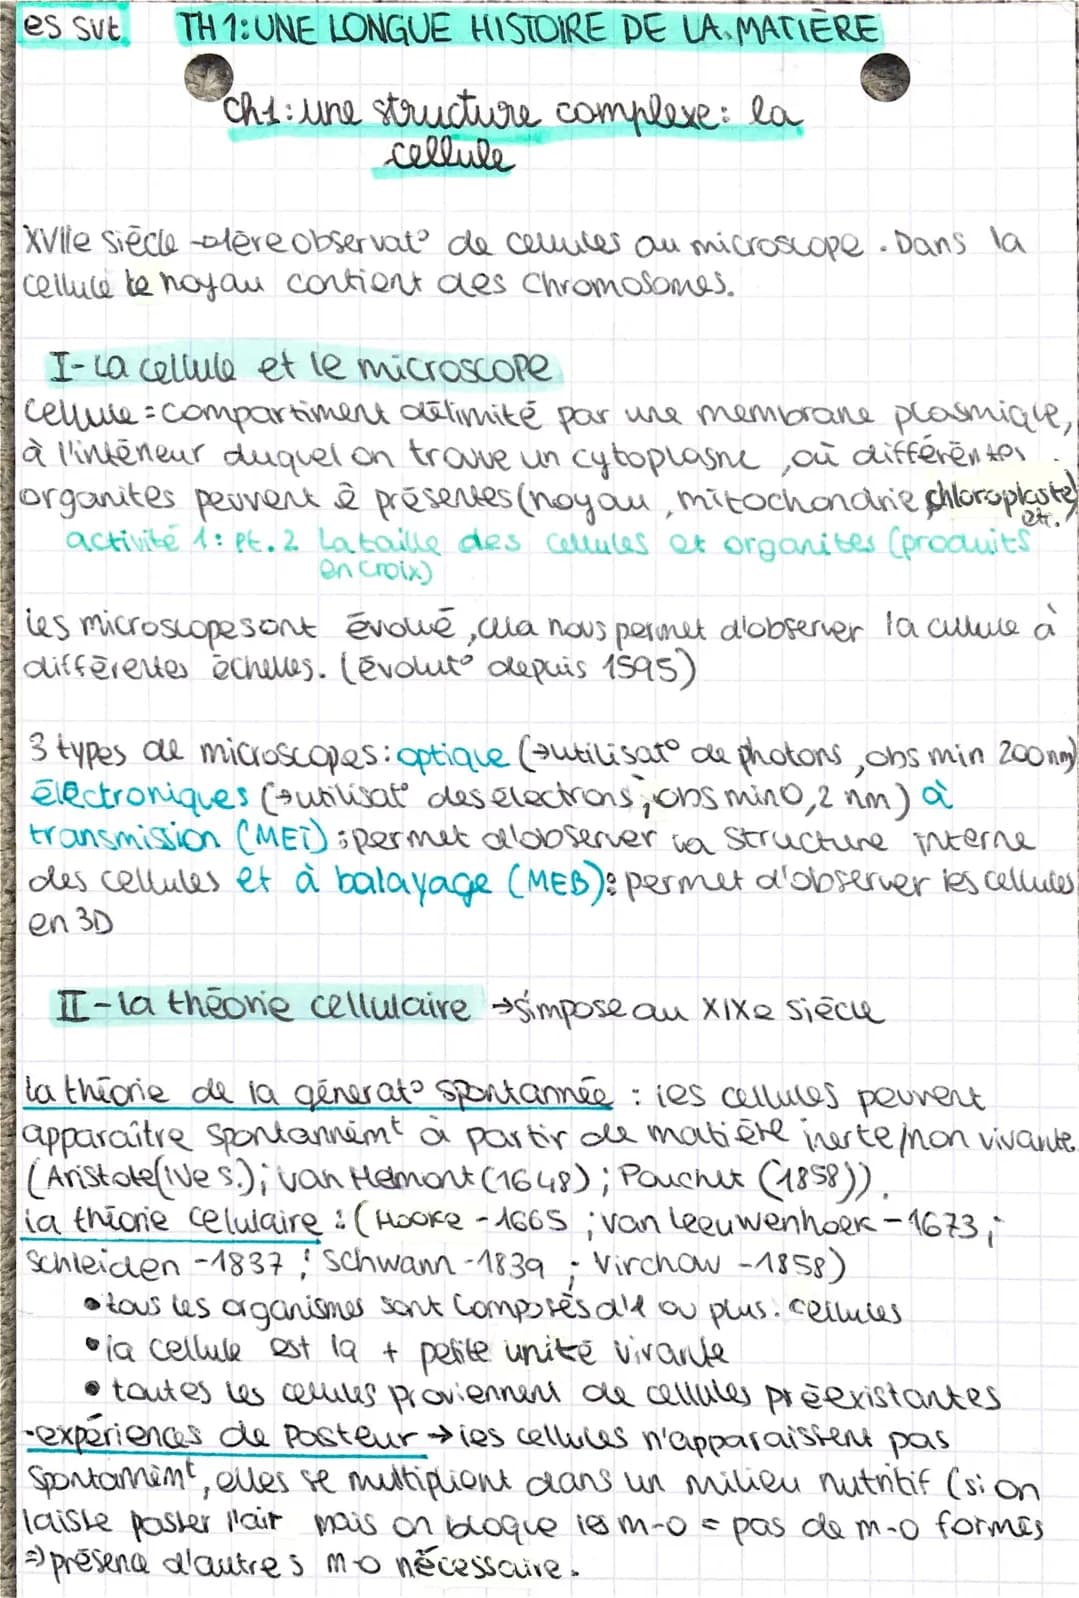 es svt TH1: UNE LONGUE HISTOIRE DE LA MATIÈRE
Ch1: une structure complexe: la
cellule
XVIIe siècle → 1ère observat° de cellules au microscope. Dans la
cellule le noyau contient des chromosomes.
I- La cellule et le microscope
cellule = compartiment délimité par une membrane plasmique,
à l'intérieur duquel on trouve un cytoplasme, où différentes
organites peuvent ê présentes (noyau, mitochondrie, chloroplaste)
etc.
activité 1: pt. 2 La taille des cellules et organites (produits
en croix)
les microscopes ont évolué, cela nous permet d'observer la cellule à
différentes échelles. (évolut° depuis 1595)
3 types de microscopes: optique (→ utilisat° de photons, obs min 200 nm)
électroniques (→ utilisat° des électrons, obs min 0,2 nm) à
transmission (MET): permet d'observer la structure interne
des cellules et à balayage (MEB): permet d'observer les cellules
en 3D
II- La théorie cellulaire → s'impose au XIXe siècle
la théorie de la générat° spontannée : les cellules peuvent
apparaître spontanném^t à partir de matière inerte/non vivante.
(Aristote (IVe s.); van Helmont (1648); Pouchet (1858)).
la théorie celulaire : (Hooke - 1665 ; van Leeuwenhoek - 1673 ;
Schleiden - 1837 ; Schwann - 1839 ; Virchow - 1858)
• tous les organismes sont composés d'1 ou plus. cellules
• la cellule est la + petite unité vivante
• toutes les cellules proviennent de cellules préexistantes
- expériences de Pasteur → les cellules n'apparaissent pas
spontaném^t, elles se multiplient dans un milieu nutritif (si on
laisse passer l'air mais on bloque les m-o = pas de m-o formés
⇒ présence d'autres m-o nécessaire.